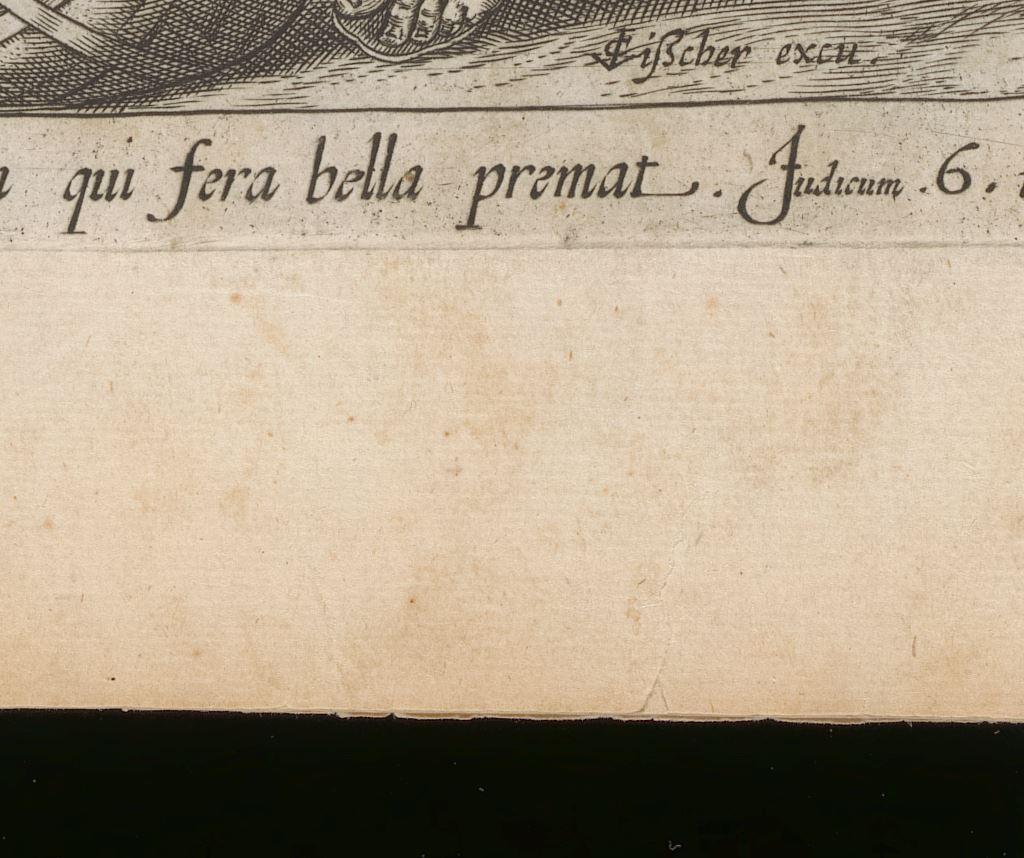 CVisscher excu.
qui fera bella premat. Judicum .6.